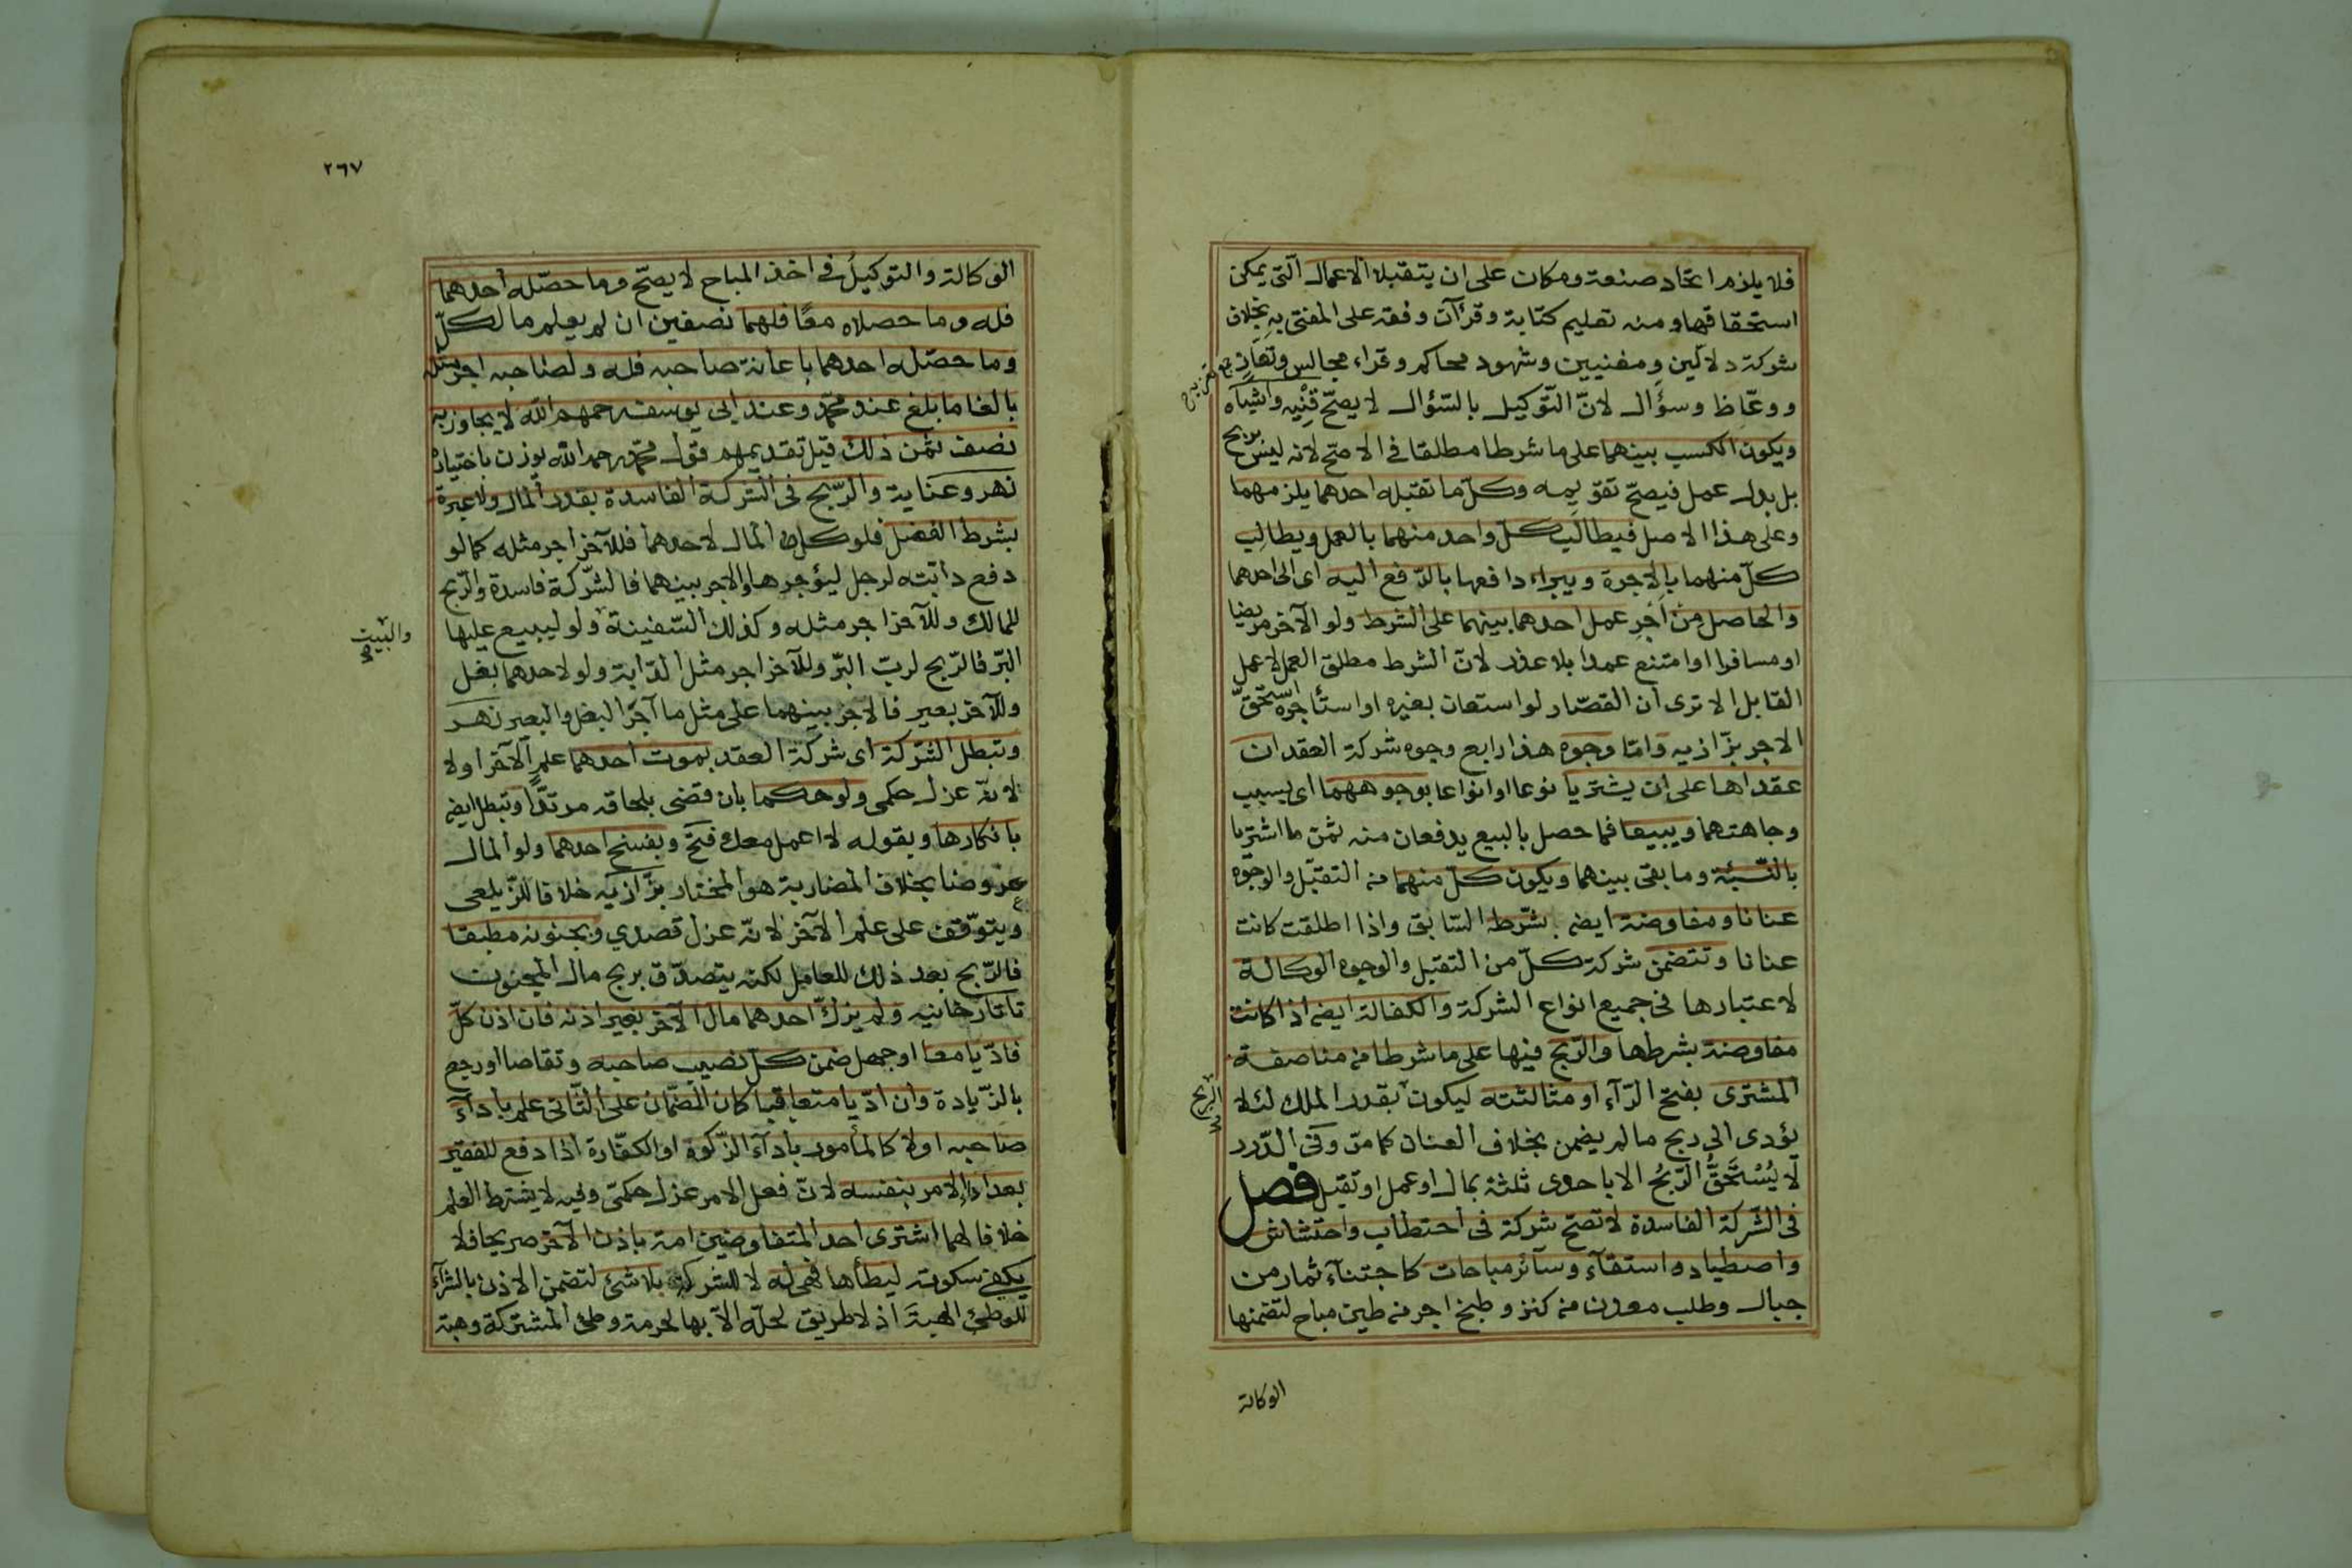 فلا يلزم اتحاد صنعة ومكان على ان يتقبلا الاعمال التى يمكن
استحقاقها ومنه تعليم كتابة وقرآن وفقه على المفتى به بخلاف
شركة دلالين ومغنيين وشهود محاكم وقراء مجالس وتعاز
ووعّاظ وسؤّال لانّ التّوكيل بالسّؤال لا يصحّ قنيه واشباه
ويكون الكسب بينهما على ما شرطا مطلقا فى الاصحّ لانه ليس بربح
بل بدل عمل فيصحّ تقويمه وكلّ ما تقبله احدهما يلزمهما
وعلى هذا الاصل فيطالب كلّ واحد منهما بالعمل ويطالب
كلّ منهما بالاجرة ويبراء دافعها بالدّفع اليه اى الى احدهما
والحاصل من اجر عمل احدهما بينهما على الشرط ولو الآخر مريضا
او مسافرا او امتنع عمدا بلا عذر لانّ الشرط مطلق العمل لا عمل
القابل الا ترى ان القصّار لو استعان بغيره او استأجره استحقّ
الاجر بزّازيه وامّا وجوه هذا رابع وجوه شركة العقد ان
عقداها على ان يشتريا نوعا او انواعا بوجوههما اى بسبب
وجاهتهما ويبيعا فما حصل بالبيع يدفعان منه ثمن ما اشتريا
بالنّسيئة وما بقى بينهما ويكون كلّ منهما من التقبّل والوجوه
عنانا ومفاوضة ايضه بشرطه السّابق واذا اطلقت كانت
عنانا وتتضمن شركة كلّ من التقبل والوجوه الوكالة
لاعتبارها فى جميع انواع الشركة والكفالة ايضه اذا كانت
مفاوضة بشرطها والرّبح فيها على ما شرطا من مناصفة
المشترى بفتح الرّاء او مثالثته ليكون بقدر الملك لئلا
الربح
يؤدى الى ربح مالم يضمن بخلاف العنان كما مرّ وفى الدّرر
لا يُسْتَحَقُّ الرّبحُ الا باحدى ثلثة بمال او عمل او تقبل فصل
فى الشّركة الفاسدة لا تصحّ شركة فى احتطاب واحتشاش
واصطياد واستقآء وسآئر مباحات كاجتنآء ثمار من
جبال وطلب معدن من كنز وطبخ اجر من طين مباح لتضمنها
الوكالة
٢٦٧
الوكالة والتوكيل فى اخذ المباح لا يصحّ وما حصّله احدهما
فله وما حصلاه معًا فلهما نصفين ان لم يعلم ما لكلّ
وما حصّله احدهما باعانة صاحبه فله ولصاحبه اجر مثله
بالغا ما بلغ عند محمّد وعند ابى يوسف رحمهم الله لا يجاوز به
نصف ثمن ذلك قيل تقديمهم قول محمّد رحمه الله يوذن باختياره
نهر وعناية والرّبح فى الشركة الفاسدة بقدر المال ولا عبرة
بشرط الفضل فلو كل المال لاحدهما فللآخر اجر مثله كما لو
دفع دابّته لرجل ليؤجرها والاجر بينهما فالشّركة فاسدة والرّبح
للمالك وللآخر اجر مثله وكذلك السّفينة ولو ليبيع عليها
والبيت
البرّ فالرّبح لربّ البرّ وللآخر اجر مثل الدّابة ولو لاحدهما بغل
وللآخر بعير فالاجر بينهما على مثل ما آجر البغل والبعير نهر
وتبطل الشّركة اى شركة العقد بموت احدهما علم الآخر اولا
لانّه عزل حكمى ولو حكما بان قضى بلحاقه مرتدًّا وتبطل ايضه
بانكارها وبقوله لا اعمل معك فتح وبفسخ احدهما ولو المال
عروضا بخلاف المضاربة هو المختار بزّازيه خلافا للزّيلعى
ويتوّقف على علم الآخر لانّه عزل قصدي وبجنونه مطبقا
فالرّبح بعد ذلك للعامل لكنه يتصدّق بربح مال المجنون
تاتارخانيه ولم يزكّ احدهما مال الآخر بغير اذنه فان اذن كلّ
فادّيا معا او جهل ضمن كلّ نصيب صاحبه وتقاصا او رجع
بالزّيادة وان ادّيا متعاقبا كان الضّمان على الثّانى علم بادآء
صاحبه اولا كالمأمور بادآء الزّكوة او الكفّارة اذا دفع للفقير
بعد اداء الامر بنفسه لانّ فعل الامر عزل حكمّى وفيه لا يشترط العلم
خلافا لهما اشترى احد المتفاوضين امة باذن الآخر صريحا فلا
يكفى سكوته ليطأها فهى له لا للشركة بلا شئ لتضمن الاذن بالشرآء
للوطئ الهبة اذ لا طريق لحلّه الّا بها لحرمة وطئ المشتركة وهبة